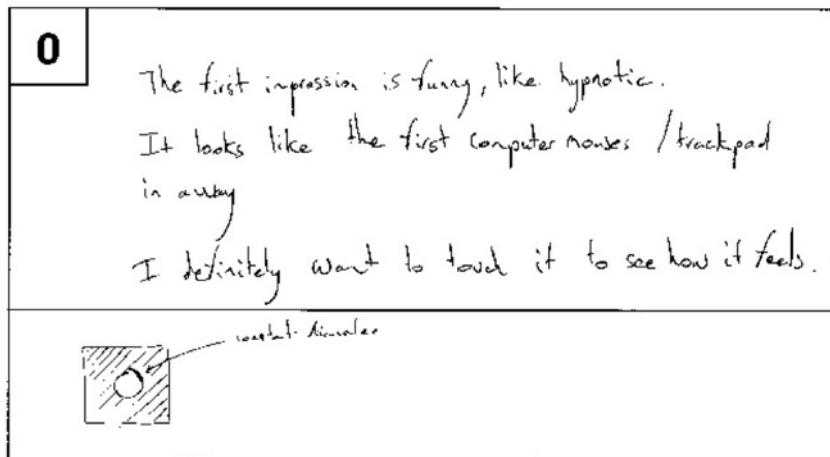 0
The first impression is funny, like hypnotic.
It looks like the first computer mouses / trackpad
in away
I definitely want to touch it to see how it feels.
constant diameter